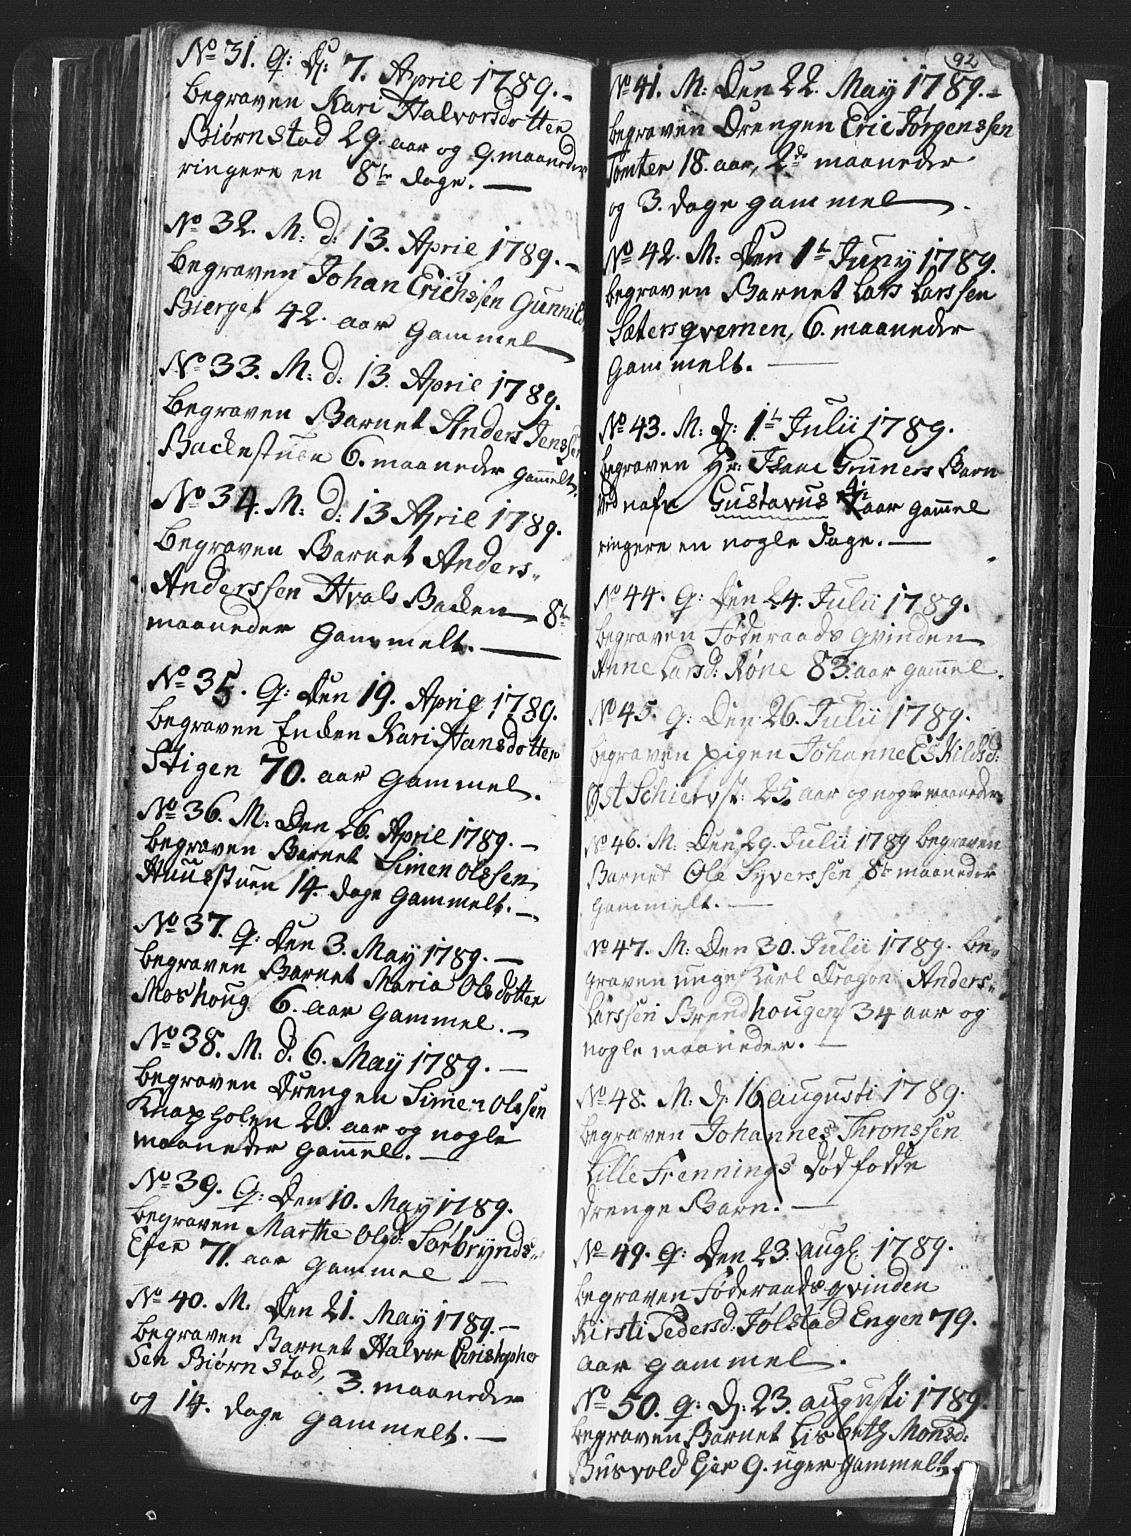 No 31. Q: D: 7. April 1789. -
begraven Kari Halvorsdotter
Biørnstad 29. aar og 9. maaneder
ringere en 8te dage. —
No 32. M: d: 13. April 1789. -
begraven Johan Erichssen Gunnild
Bierget 42. aar gammel
No 33. M: d: 13. April 1789.
begraven Barnet Anders Jenssen
Backestuen 6. maaneder gam̅elt.
No 34. M: d: 13 April 1789.
begraven Barnet Anders-
Anderssen Hvals Backen 8te
maaneder gammelt. —
No 35. Q: Den 19. April 1789.
begraven Enken Kari Hansdotter
Stigen 70. aar gammel.
No 36. M: Den 26. April 1789. -
begraven Barnet Simen Olssen
Huusstuen 14. dage gammelt. -
No 37. Q: Den 3. May 1789. —
begraven Barnet Maria Olsdotter
Moshoug 6. aar gammel. -
No 38. M: d. 6. May 1789. —
begraven Drengen Simen Olssen
Knapholen 20. aar og nogle
maaneder gam̅el. —
No 39. Q: Den 10. May 1789.
begraven Marthe Olsd: Sørbrynds-
Eyen 71. aar gammel —
No 40. M. Den 21. May 1789. -
begraven Barnet Halvor Christopher
sen Biørnstad, 3. maaneder
og 14. dage gammelt. —
92
No 41. M: Den 22. May 1789. -
begraven Drengen Eric Jørgenssen
Tomter 18. aar, 2de maaneder
og 3. dage gammel.
No 42. M: Den 1te Juny 1789.
begraven Barnet Lars Larssen
Sætersqvernen, 6. maaneder
gammelt. —
No 43. M: D: 1te Julii 1789.
begraven Hr: Isaac Gruners Barn
ved nafn Gustavus aar gam̅el
ringere en nogle dage. —
No 44. Q: Den 24. Julii 1789.
begraven Føderaads qvinden
Anne Larsd: Røne 83. aar gam̅el.
No 45. Q: Den 26. Julii 1789.
begraven pigen Johanne Eskildsd:
Øst Schiervst: 25 aar og nogle maaneder.
No 46. M: Den 29. Julii 1789 begraven
Barnet Ole Syverssen 8te maaneder
gammelt. —
No 47. M: Den 30. Julii 1789. be-
graven unge Karl Dragon Anders-
Larssen Brendhougen 34 aar og
nogle maaneder. —
No 48. M: D: 16 augusti 1789.
begraven Johannes Thronssen
Lille Frennings Dødfødde
drenge Barn. —
No 49. Q: Den 23. aug: 1789.
begraven Føderaads qvinden
Kirsti Pedersd: Jølstad Engen 79.
aar gammel.
No 50. Q: D: 23. augusti 1789.
begraven Barnet Lisbeth Monsd:
Busvold Ejer 9. uger gammelt. -